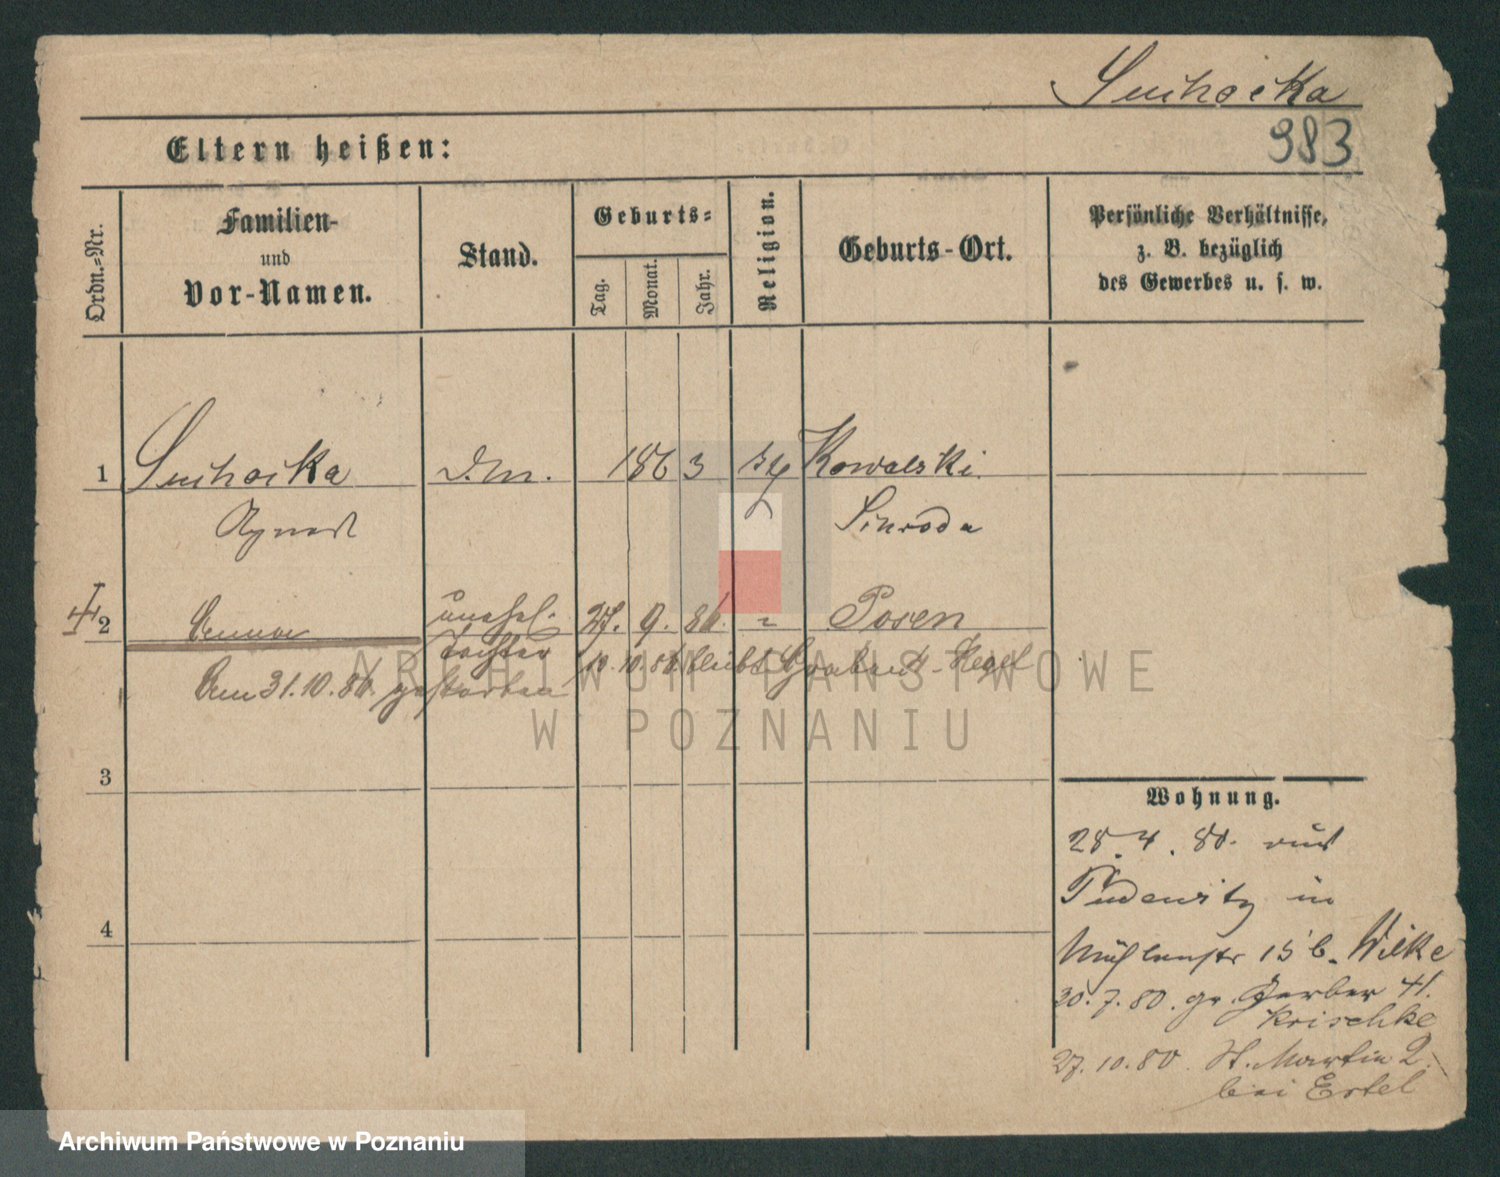 Suchocka
983
Eltern heißen:
Ordn.-Nr.
Familien-
und
Vor-Namen.
Stand.
Geburts-
Tag.
Monat.
Jahr.
Religion.
Geburts-Ort.
Persönliche Verhältnisse,
z. B. bezüglich
des Gewerbes u. s. w.
1 Suchocka D.M. 1863 Kowalski
Agnes Schroda
2 unehel. 27. 9. 80. Posen
Tochter 10.10.80. bleibt
31.10.80. gestorben
3
4
Wohnung.
28.4.80. aus
Pudewitz in
Mühlenstr 15 b. Wilke
30.7.80. gr. Gerber 41.
Krischke
27.10.80 St. Martin 2.
bei Ertel
ARCHIWUM PAŃSTWOWE
W POZNANIU
Archiwum Państwowe w Poznaniu